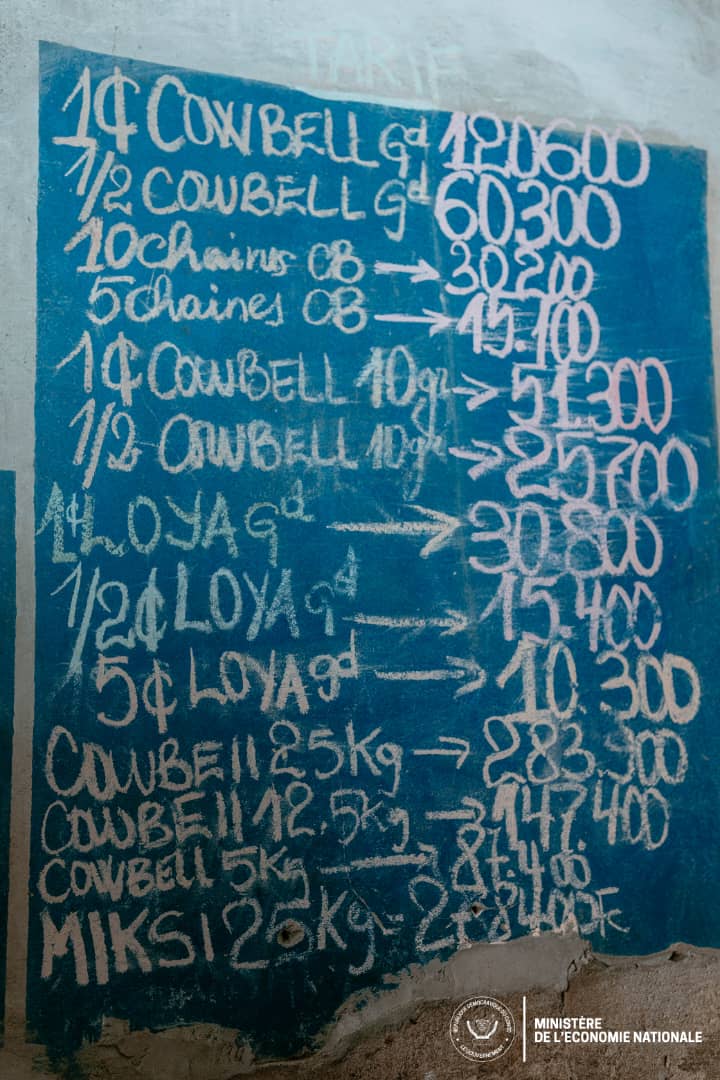 TARIF
1₵ COWBELL Gd 120600
1/2 COWBELL Gd 60300
10 chaines CB → 30.200
5 chaines CB → 15.100
1₵ COWBELL 10gr → 51.300
1/2 COWBELL 10gr → 25700
1₵ LOYA Gd → 30.800
1/2₵ LOYA gd → 15.400
5₵ LOYA gd → 10.300
COWBEll 25Kg → 283.300
COWBEll 12.5Kg → 147.400
COWBEll 5Kg →
MIKSI 25Kg -
RÉPUBLIQUE DÉMOCRATIQUE DU CONGO
LE GOUVERNEMENT
MINISTÈRE
DE L'ECONOMIE NATIONALE